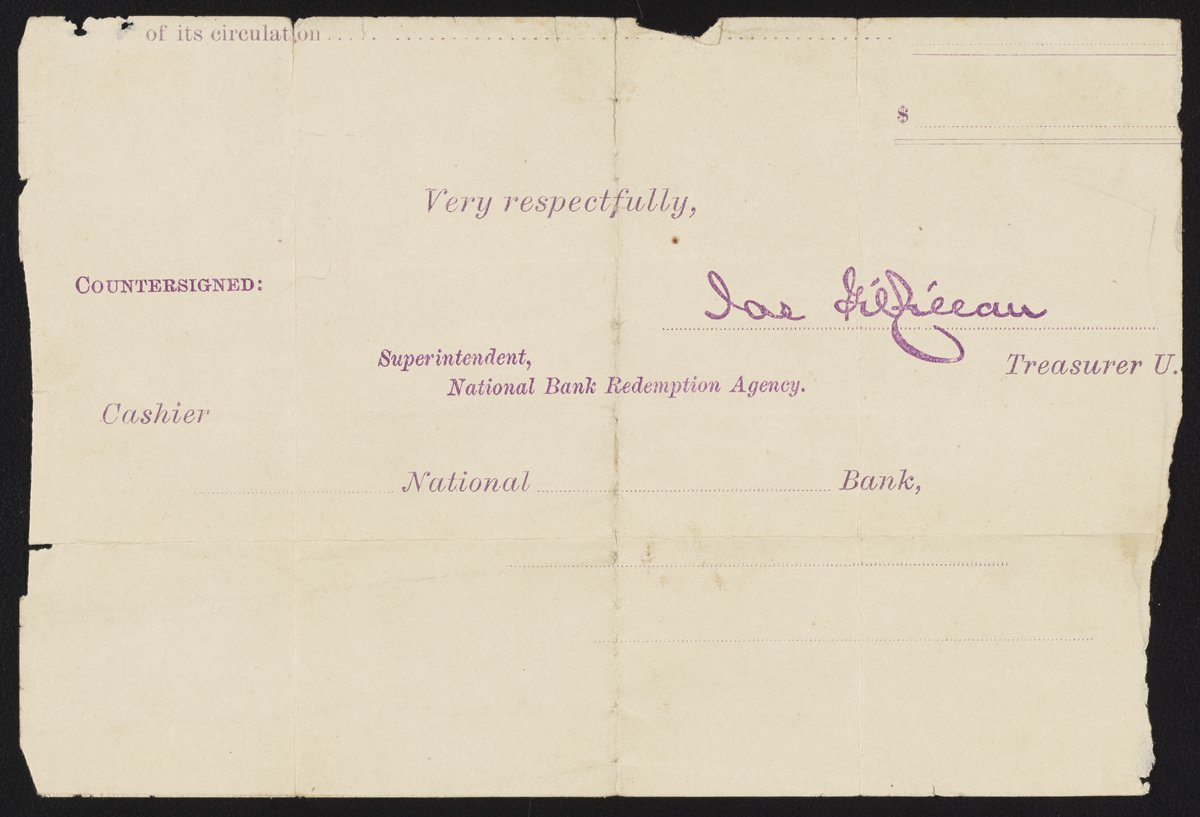 of its circulation
$
Very respectfully,
COUNTERSIGNED:
Jas Gilfillan
Superintendent,
Treasurer U.
National Bank Redemption Agency.
Cashier
National Bank,